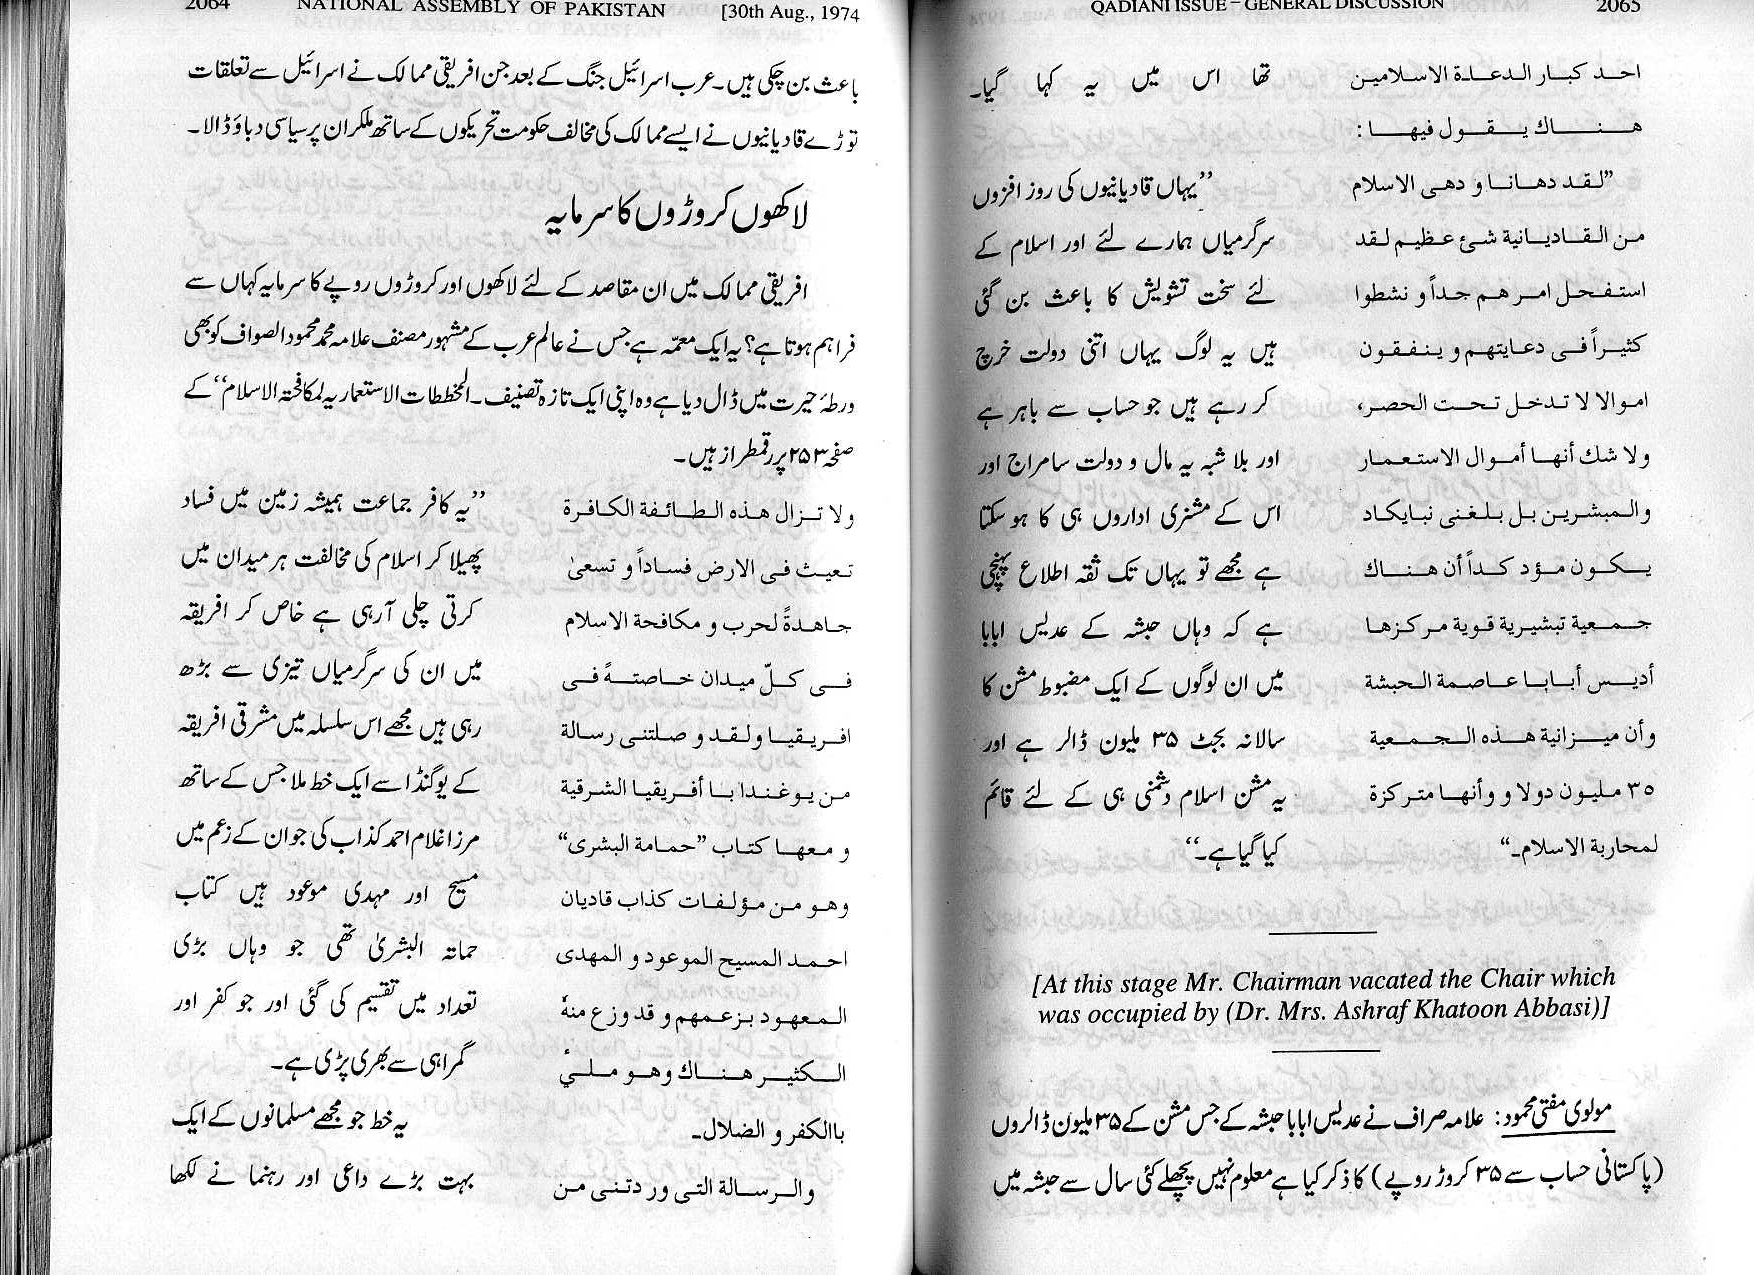 2064 NATIONAL ASSEMBLY OF PAKISTAN [30th Aug., 1974
باعث بن چکی ہیں۔ عرب اسرائیل جنگ کے بعد جن افریقی ممالک نے اسرائیل سے تعلقات
توڑے قادیانیوں نے ایسے ممالک کی مخالف حکومت تحریکوں کے ساتھ ملکر ان پر سیاسی دباؤ ڈالا۔
لاکھوں کروڑوں کا سرمایہ
افریقی ممالک میں ان مقاصد کے لئے لاکھوں اور کروڑوں روپے کا سرمایہ کہاں سے
فراہم ہوتا ہے؟ یہ ایک معمّہ ہے جس نے عالم عرب کے مشہور مصنف علامہ محمد محمود الصواف کو بھی
ورطۂ حیرت میں ڈال دیا ہے وہ اپنی ایک تازہ تصنیف۔ المخططات الاستعماریہ لمکافحتہ الاسلام‘‘ کے
صفحہ ۲۵۳ پر رقمطراز ہیں۔
ولا تزال هذه الطائفة الكافرة
تعيث فى الارض فساداً و تسعىٰ
جاهدةً لحرب و مكافحة الاسلام
فى كلّ ميدان خاصتهً فى
افريقيا ولقد و صلتنى رسالة
من يوغندا با أفريقيا الشرقية
و معها كتاب ”حمامة البشرى“
وهو من مؤلفات كذاب قاديان
احمد المسيح الموعود و المهدى
المعهود بزعمهم و قد وزع منهٗ
الكثير هناك وهو ملئٌ
باالكفر و الضلال۔
والرسالة التى ور دتنى من
’’یہ کافر جماعت ہمیشہ زمین میں فساد
پھیلا کر اسلام کی مخالفت ہر میدان میں
کرتی چلی آرہی ہے خاص کر افریقہ
میں ان کی سرگرمیاں تیزی سے بڑھ
رہی ہیں مجھے اس سلسلہ میں مشرقی افریقہ
کے یوگنڈا سے ایک خط ملا جس کے ساتھ
مرزا غلام احمد کذاب کی جو ان کے زعم میں
مسیح اور مہدی موعود ہیں کتاب
حماتہ البشریٰ تھی جو وہاں بڑی
تعداد میں تقسیم کی گئی اور جو کفر اور
گمراہی سے بھری پڑی ہے۔
یہ خط جو مجھے مسلمانوں کے ایک
بہت بڑے داعی اور رہنما نے لکھا
QADIANI ISSUE – GENERAL DISCUSSION 2065
احد كبار الدعاة الاسلامين
هناك يقول فيها:
”لقد دهانا و دهى الاسلام
من القاديانية شئ عظيم لقد
استفحل امر هم جداً و نشطوا
كثيراً فى دعايتهم و ينفقون
اموالا لا تدخل تحت الحصر،
ولا شك أنها أموال الاستعمار
والمبشرين بل بلغنى نبايكاد
يكون مؤد كداً أن هناك
جمعية تبشيرية قوية مركزها
أديس أبابا عاصمة الحبشة
وأن ميزانية هذه الجمعية
۳۵ مليون دولا و وأنها متركزة
لمحاربة الاسلام۔“
تھا اس میں یہ کہا گیا۔
’’یہاں قادیانیوں کی روز افزوں
سرگرمیاں ہمارے لئے اور اسلام کے
لئے سخت تشویش کا باعث بن گئی
ہیں یہ لوگ یہاں اتنی دولت خرچ
کر رہے ہیں جو حساب سے باہر ہے
اور بلا شبہ یہ مال و دولت سامراج اور
اس کے مشنری اداروں ہی کا ہو سکتا
ہے مجھے تو یہاں تک ثقہ اطلاع پہنچی
ہے کہ وہاں حبشہ کے عدیس ابابا
میں ان لوگوں کے ایک مضبوط مشن کا
سالانہ بجٹ ۳۵ ملیون ڈالر ہے اور
یہ مشن اسلام دشمنی ہی کے لئے قائم
کیا گیا ہے۔‘‘
[At this stage Mr. Chairman vacated the Chair which
was occupied by (Dr. Mrs. Ashraf Khatoon Abbasi)]
مولوی مفتی محمود: علامہ صراف نے عدیس ابابا حبشہ کے جس مشن کے ۳۵ ملیون ڈالروں
(پاکستانی حساب سے ۳۵ کروڑ روپے) کا ذکر کیا ہے معلوم نہیں پچھلے کئی سال سے حبشہ میں